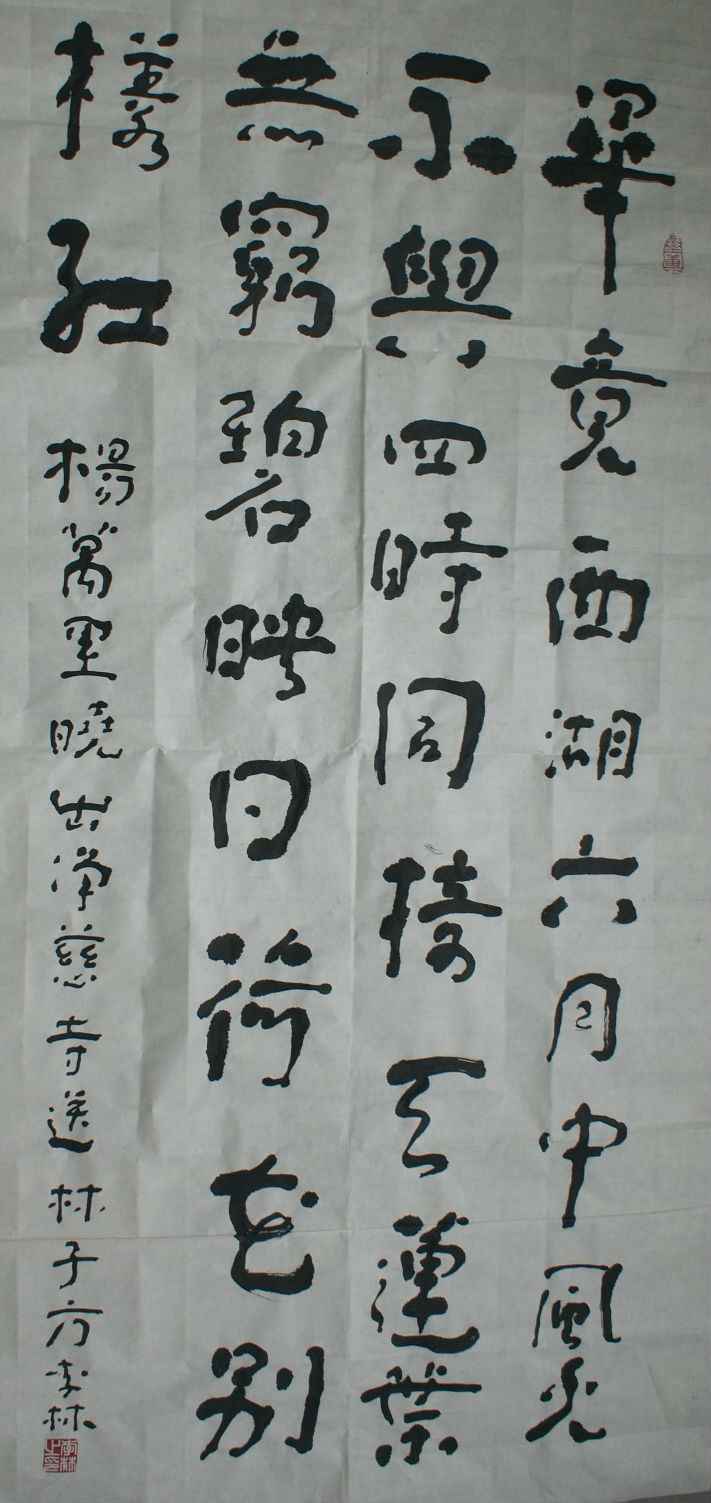 畢竟西湖六月中風光
不與四時同接天蓮葉
無窮碧映日荷花別
樣紅 楊萬里曉出淨慈寺送林子方李林